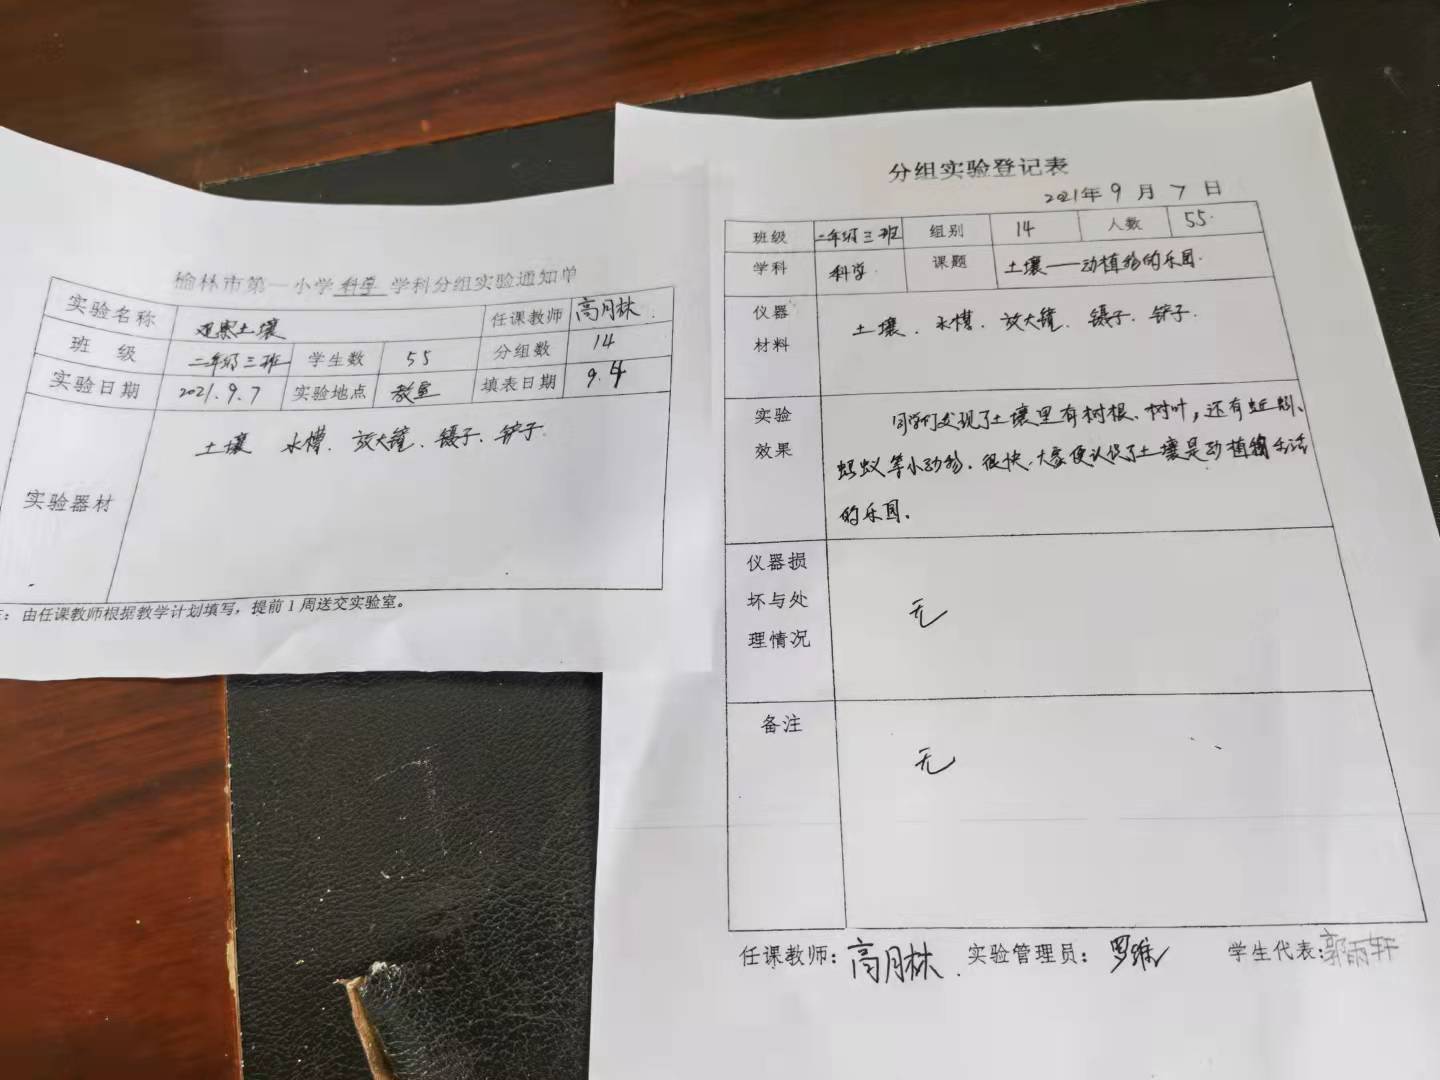 榆林市第一小学科学学科分组实验通知单
实验名称 观察土壤 任课教师 高月林
班 级 二年级三班 学生数 55 分组数 14
实验日期 2021.9.7 实验地点 教室 填表日期 9.4
实验器材 土壤 水槽、放大镜、镊子、铲子
：由任课教师根据教学计划填写，提前1周送交实验室。
分组实验登记表
2021年9月7日
班级 二年级三班 组别 14 人数 55
学科 科学 课题 土壤——动植物的乐园
仪器
材料
土壤、水槽、放大镜、镊子、铲子
实验
效果
同学们发现了土壤里有树根、树叶，还有蚯蚓、
蚂蚁等小动物。很快，大家便认识了土壤是动植物生活
的乐园。
仪器损
坏与处
理情况
无
备注
无
任课教师：高月林 实验管理员：罗维 学生代表：郭雨轩